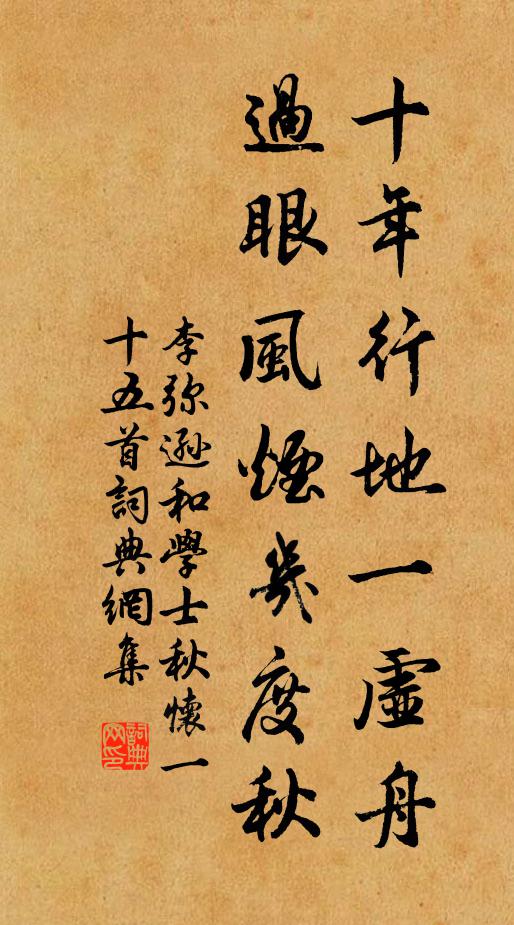 十年行地一虛舟
過眼風煙幾度秋
李弥遜和學士秋懷一
十五首詞典網集
詞典網印